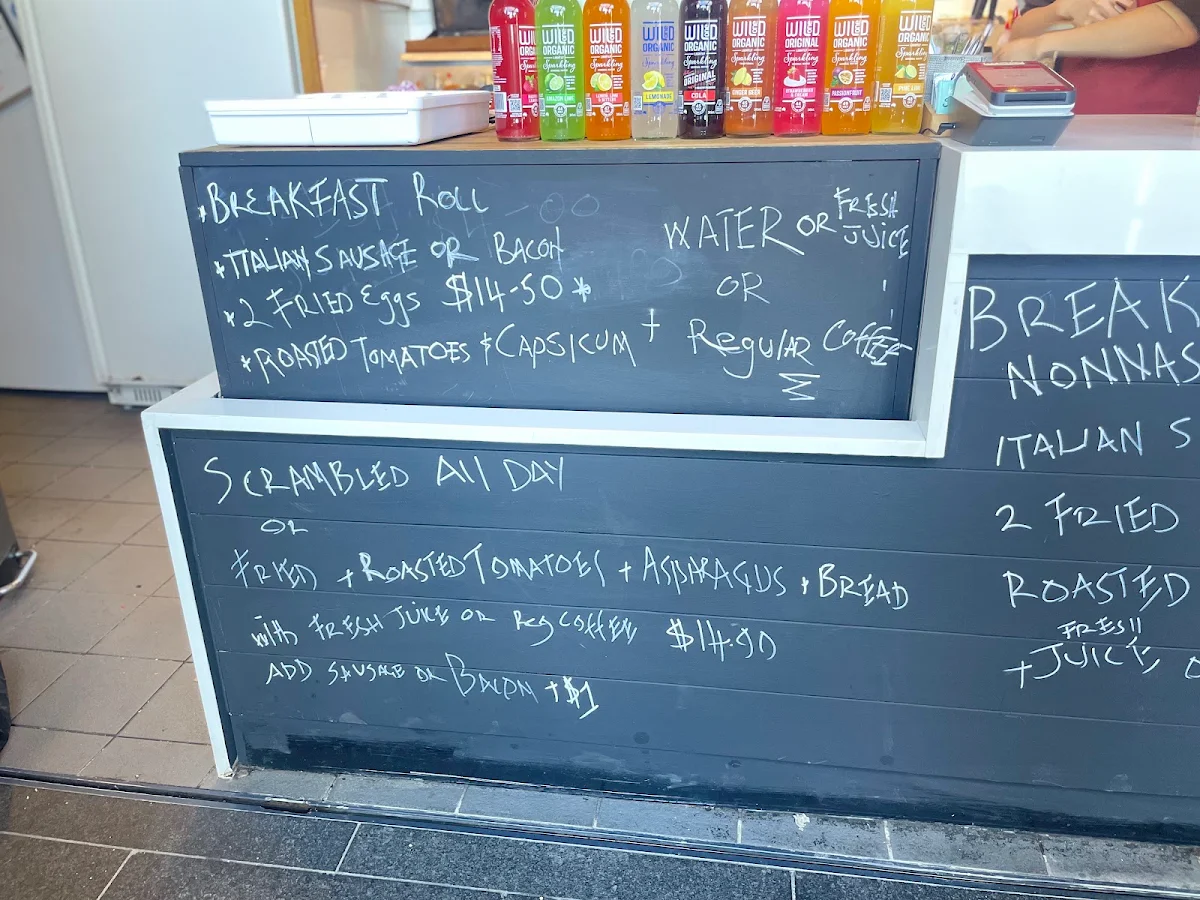 WILD ORGANIC Sparkling
WILD ORGANIC Sparkling
WILD ORGANIC Sparkling
WILD ORGANIC Sparkling LEMONADE
WILD ORGANIC Sparkling ORIGINAL COLA
WILD ORGANIC Sparkling GINGER BEER
WILD ORIGINAL Sparkling
WILD ORGANIC Sparkling PASSIONFRUIT
WILD ORGANIC Sparkling PINE LIME
*BREAKFAST ROLL
*ITALIAN SAUSAGE OR BACON
*2 FRIED Eggs $14.50 *
*ROASTED TOMATOES & CAPSICUM +
WATER OR FRESH JUICE
OR
Regular COFFEE
SCRAMBLED All DAY
OR
FRIED + ROASTED TOMATOES + ASPARAGUS + BREAD
with FRESH JUICE OR Reg COFFEE $14.90
ADD SAUSAGE OR BACON + $1
BREAK
NONNAS
ITALIAN S
2 FRIED
ROASTED
FRESH
+ JUICE O